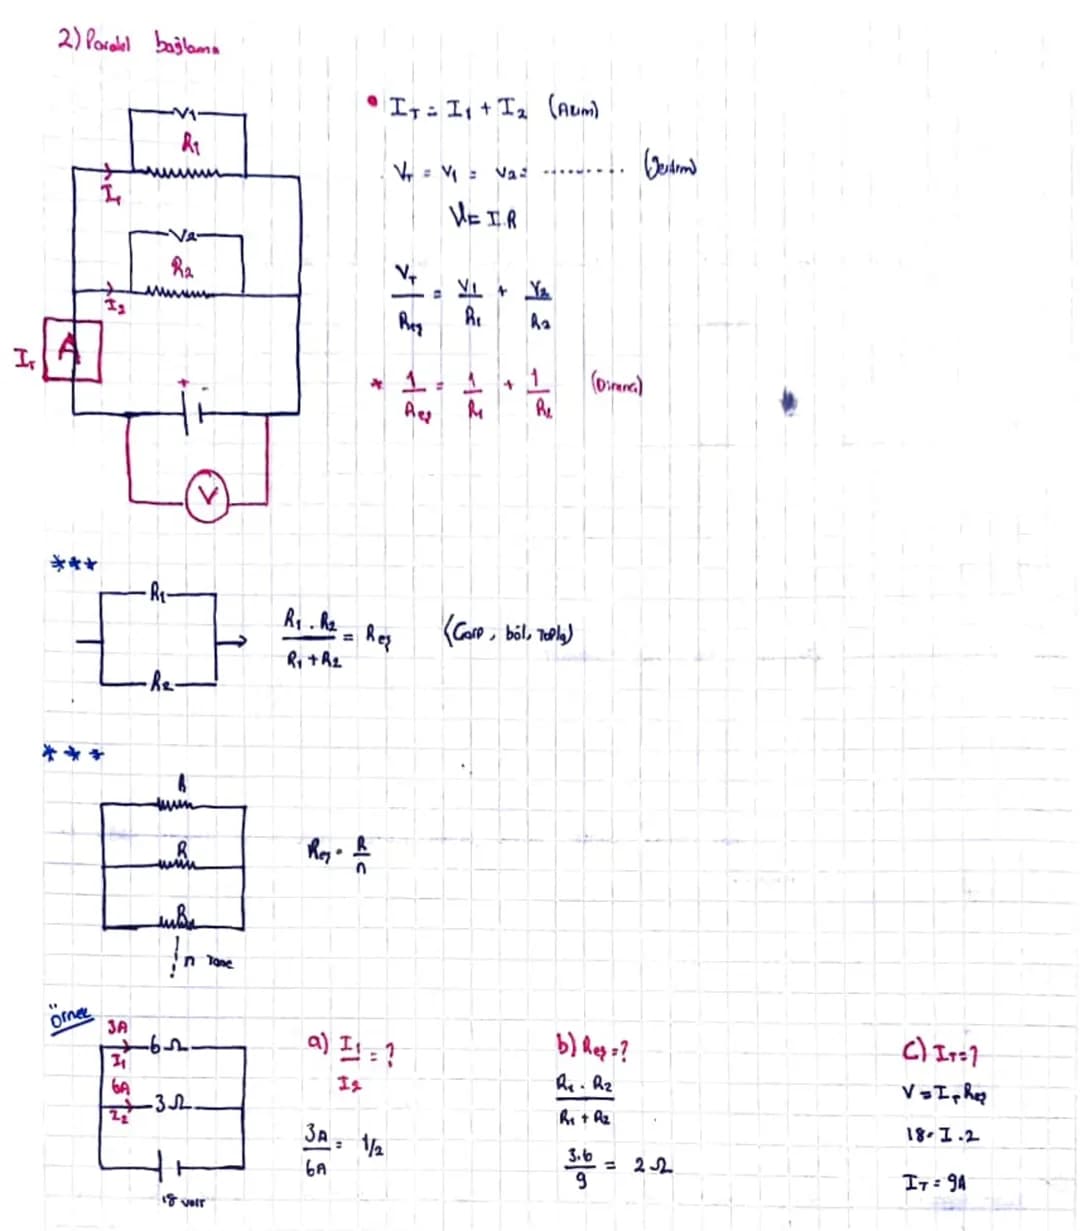 2) Paralel bağlama
V1
R1
I1
V2
R2
I2
IT
A
+ -
V
• IT = I1 + I2 (Akım)
VT = V1 = V2 = .......... (Gerilim)
V = I.R
VT/Reş = V1/R1 + V2/R2
* 1/Reş = 1/R1 + 1/R2 (Direnç)
***
R1
R2
R1 . R2 / R1 + R2 = Reş (Çarp, böl, Topla)
***
R
R
R
n Tane
Reş = R/n
Örnek
3A
I1
6Ω
6A
I2
3Ω
18 volt
a) I1/I2 = ?
3A/6A = 1/2
b) Reş = ?
R1 . R2 / R1 + R2
3.6/9 = 2Ω
C) IT = ?
V = IT Reş
18 = I . 2
IT = 9A